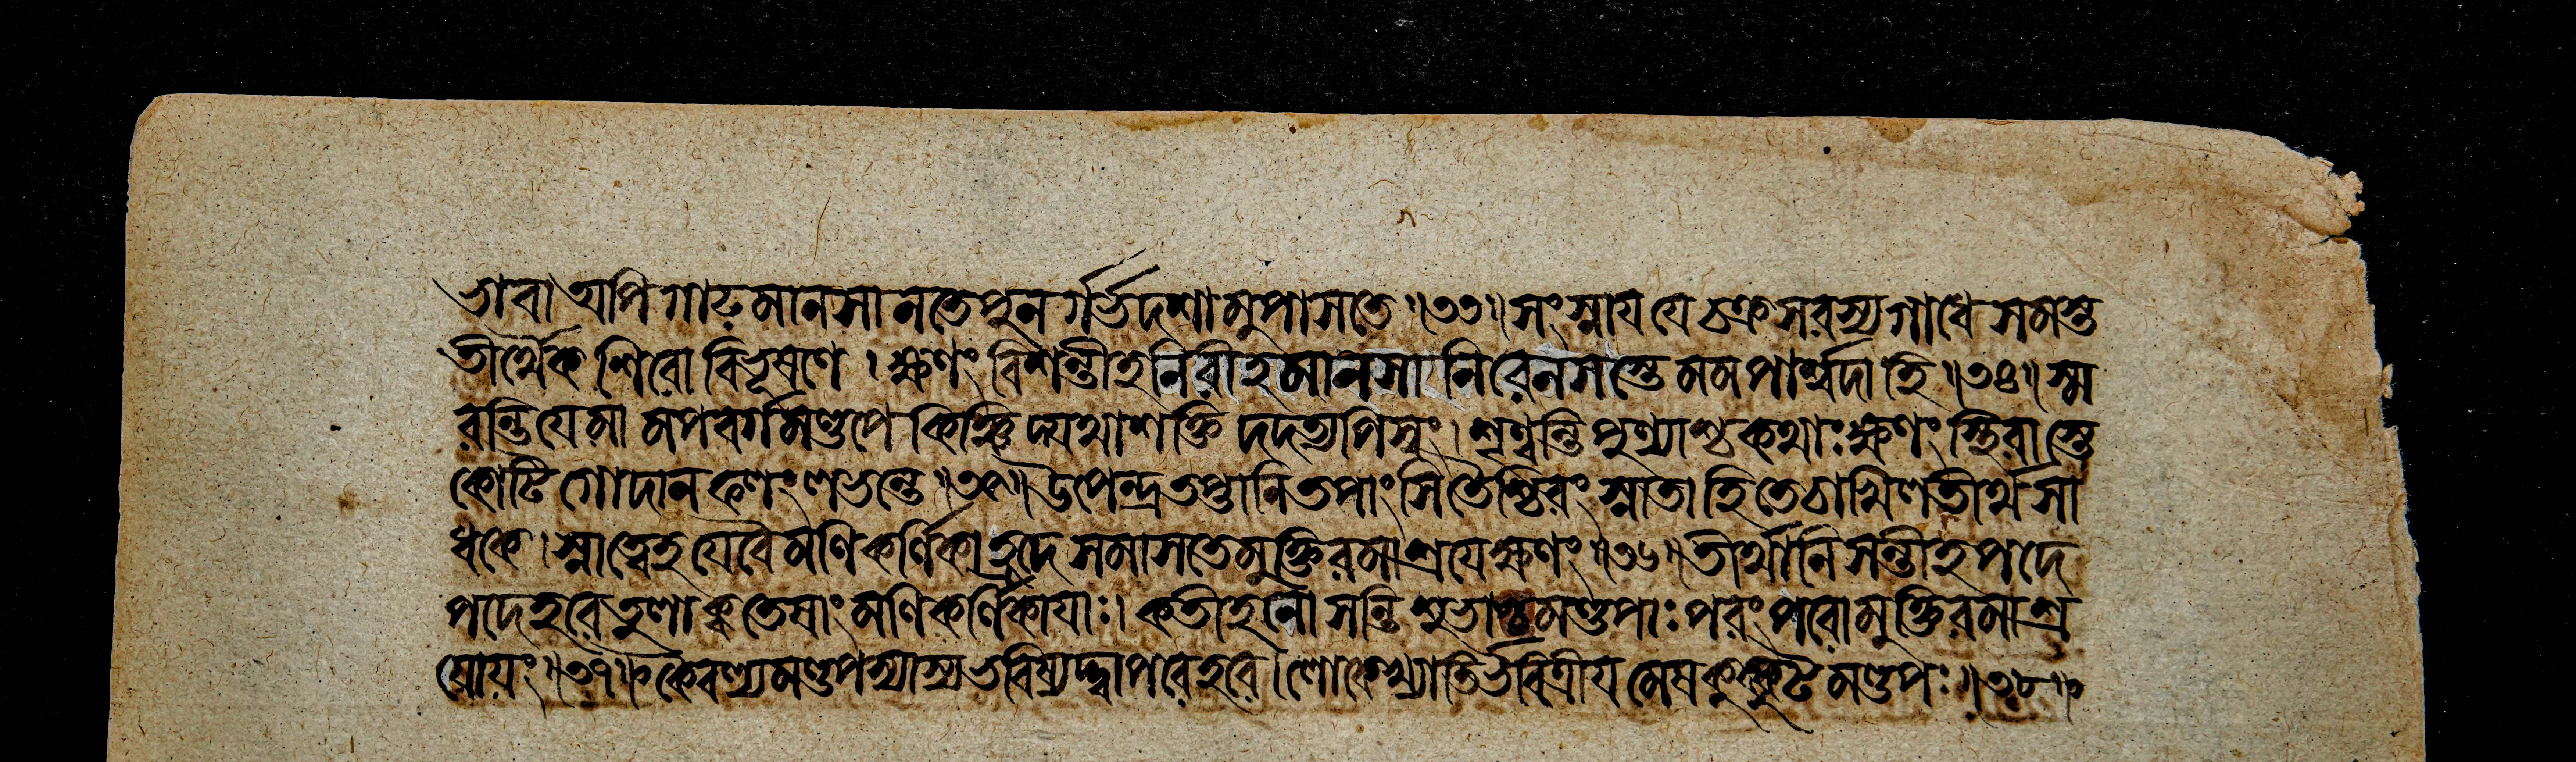 ভাবা অপি গাঢমানসা ন তে পুনর্গর্ভদশামুপাসতে ॥৩৩॥ সংস্নায যে চক্রসরস্যগাধে সমস্ত
তীর্থৈকশিরোবিভূষণে । ক্ষণং বিশন্তীহ নিরীহমানসা নিরেনসস্তে মম পার্ষদা হি ॥৩৪॥ স্ম
রন্তি যে মামপবর্গমণ্ডপে কিঞ্চিদ্যথাশক্তি দদত্যপি স্বং । শৃণ্বন্তি পুণ্যাশ্চ কথাঃ ক্ষণং স্থিরাস্তে
কোটিগোদানফলং লভন্তে ॥৩৫॥ উপেন্দ্র তপ্তানি তপাংসি তৈশ্চিরং স্নাতা হি তে চাখিলতীর্থসা
র্থকে । স্নাত্বেহ যে বৈ মণিকর্ণিকাহ্রদে সমাসতে মুক্তিরমাশ্রযে ক্ষণং ॥৩৬॥ তীর্থানি সন্তীহ পদে
পদে হরে তুলা ক্ব তেষাং মণিকর্ণিকাযাঃ । কতীহ নো সন্তি শুভাশ্চ মণ্ডপাঃ পরং পরো মুক্তিরমাশ্র
যোযং ॥৩৭॥ কৈবল্যমণ্ডপস্যাস্য ভবিষ্যদ্দ্বাপরে হরে । লোকে খ্যাতির্ভবিত্রীযমেষ কুক্কুটমণ্ডপঃ ॥৩৮॥